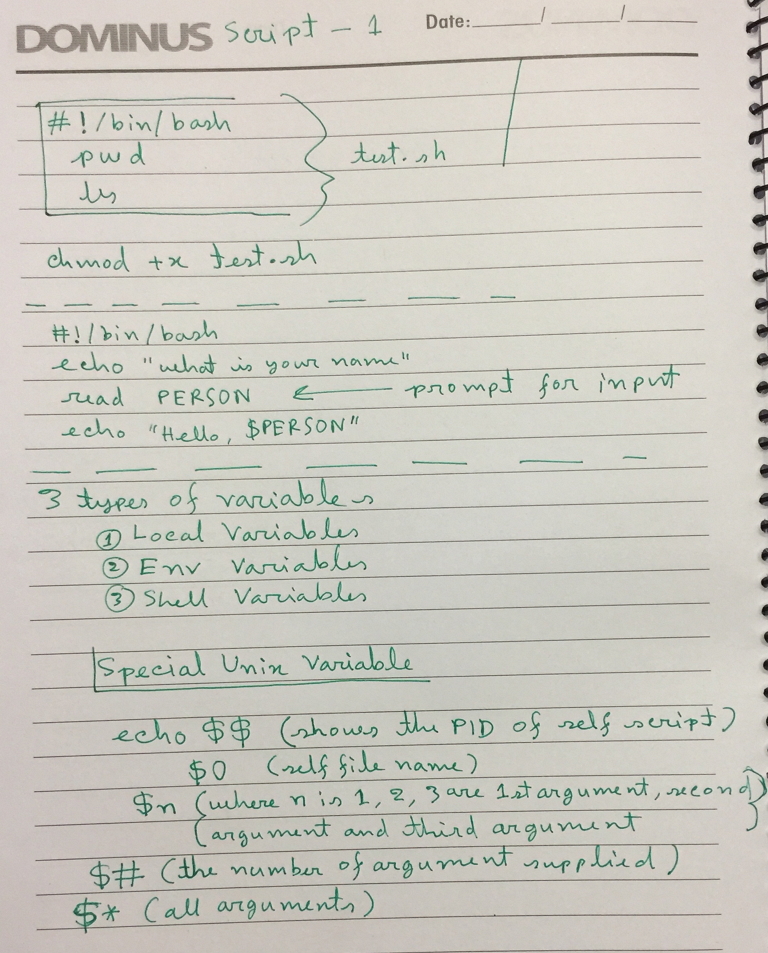 DOMINUS Script - 1 Date: __/__/__
#!/bin/bash
pwd
ls
test.sh
chmod +x test.sh
#!/bin/bash
echo "what is your name"
read PERSON ← prompt for input
echo "Hello, $PERSON"
3 types of variables
① Local Variables
② Env Variables
③ Shell Variables
Special Unix Variable
echo $$ (shows the PID of self script)
$0 (self file name)
$n (where n is 1, 2, 3 are 1st argument, second
argument and third argument)
$# (the number of argument supplied)
$* (all arguments)